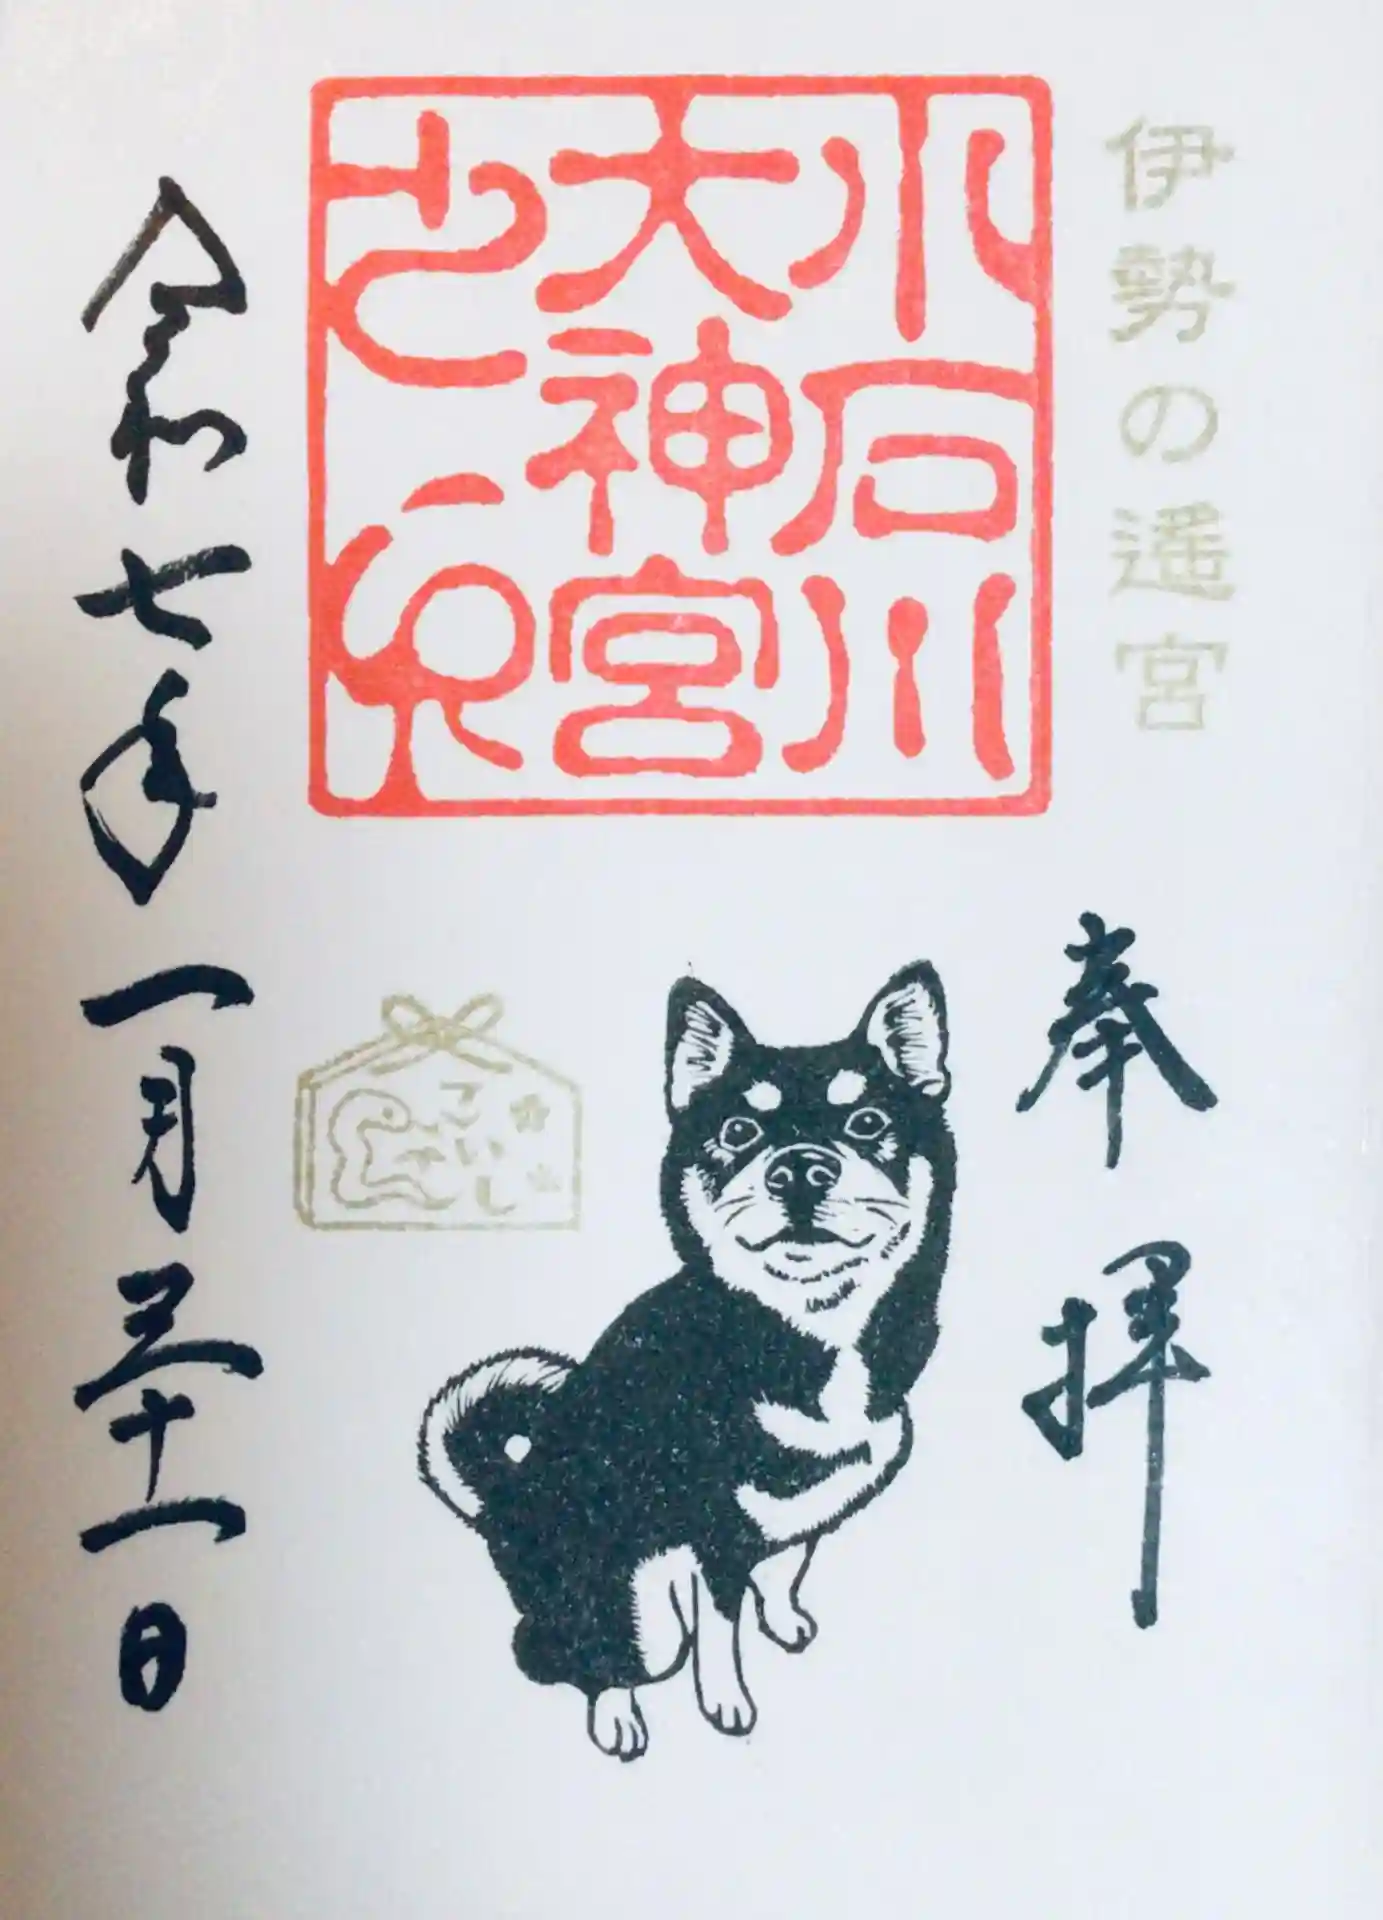 伊勢の遙宮
奉拝
小石川
大神宮
之印
こいし
令和七年一月三十一日